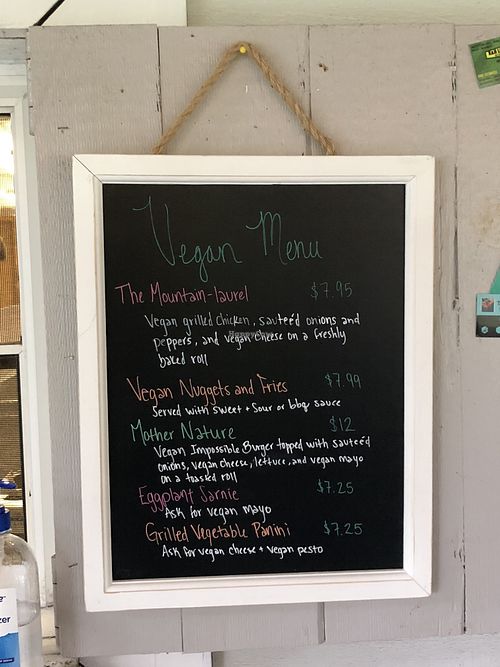 Vegan Menu
The Mountain-laurel $7.95
Vegan grilled chicken, sauteé'd onions and
peppers, and vegan cheese on a freshly
baked roll
Vegan Nuggets and Fries $7.99
Served with sweet + sour or bbq sauce
Mother Nature $12
Vegan Impossible Burger topped with sauteé'd
onions, vegan cheese, lettuce, and vegan mayo
on a toasted roll
Eggplant Sarnie $7.25
Ask for vegan mayo
Grilled Vegetable Panini $7.25
Ask for vegan cheese + vegan pesto
zer